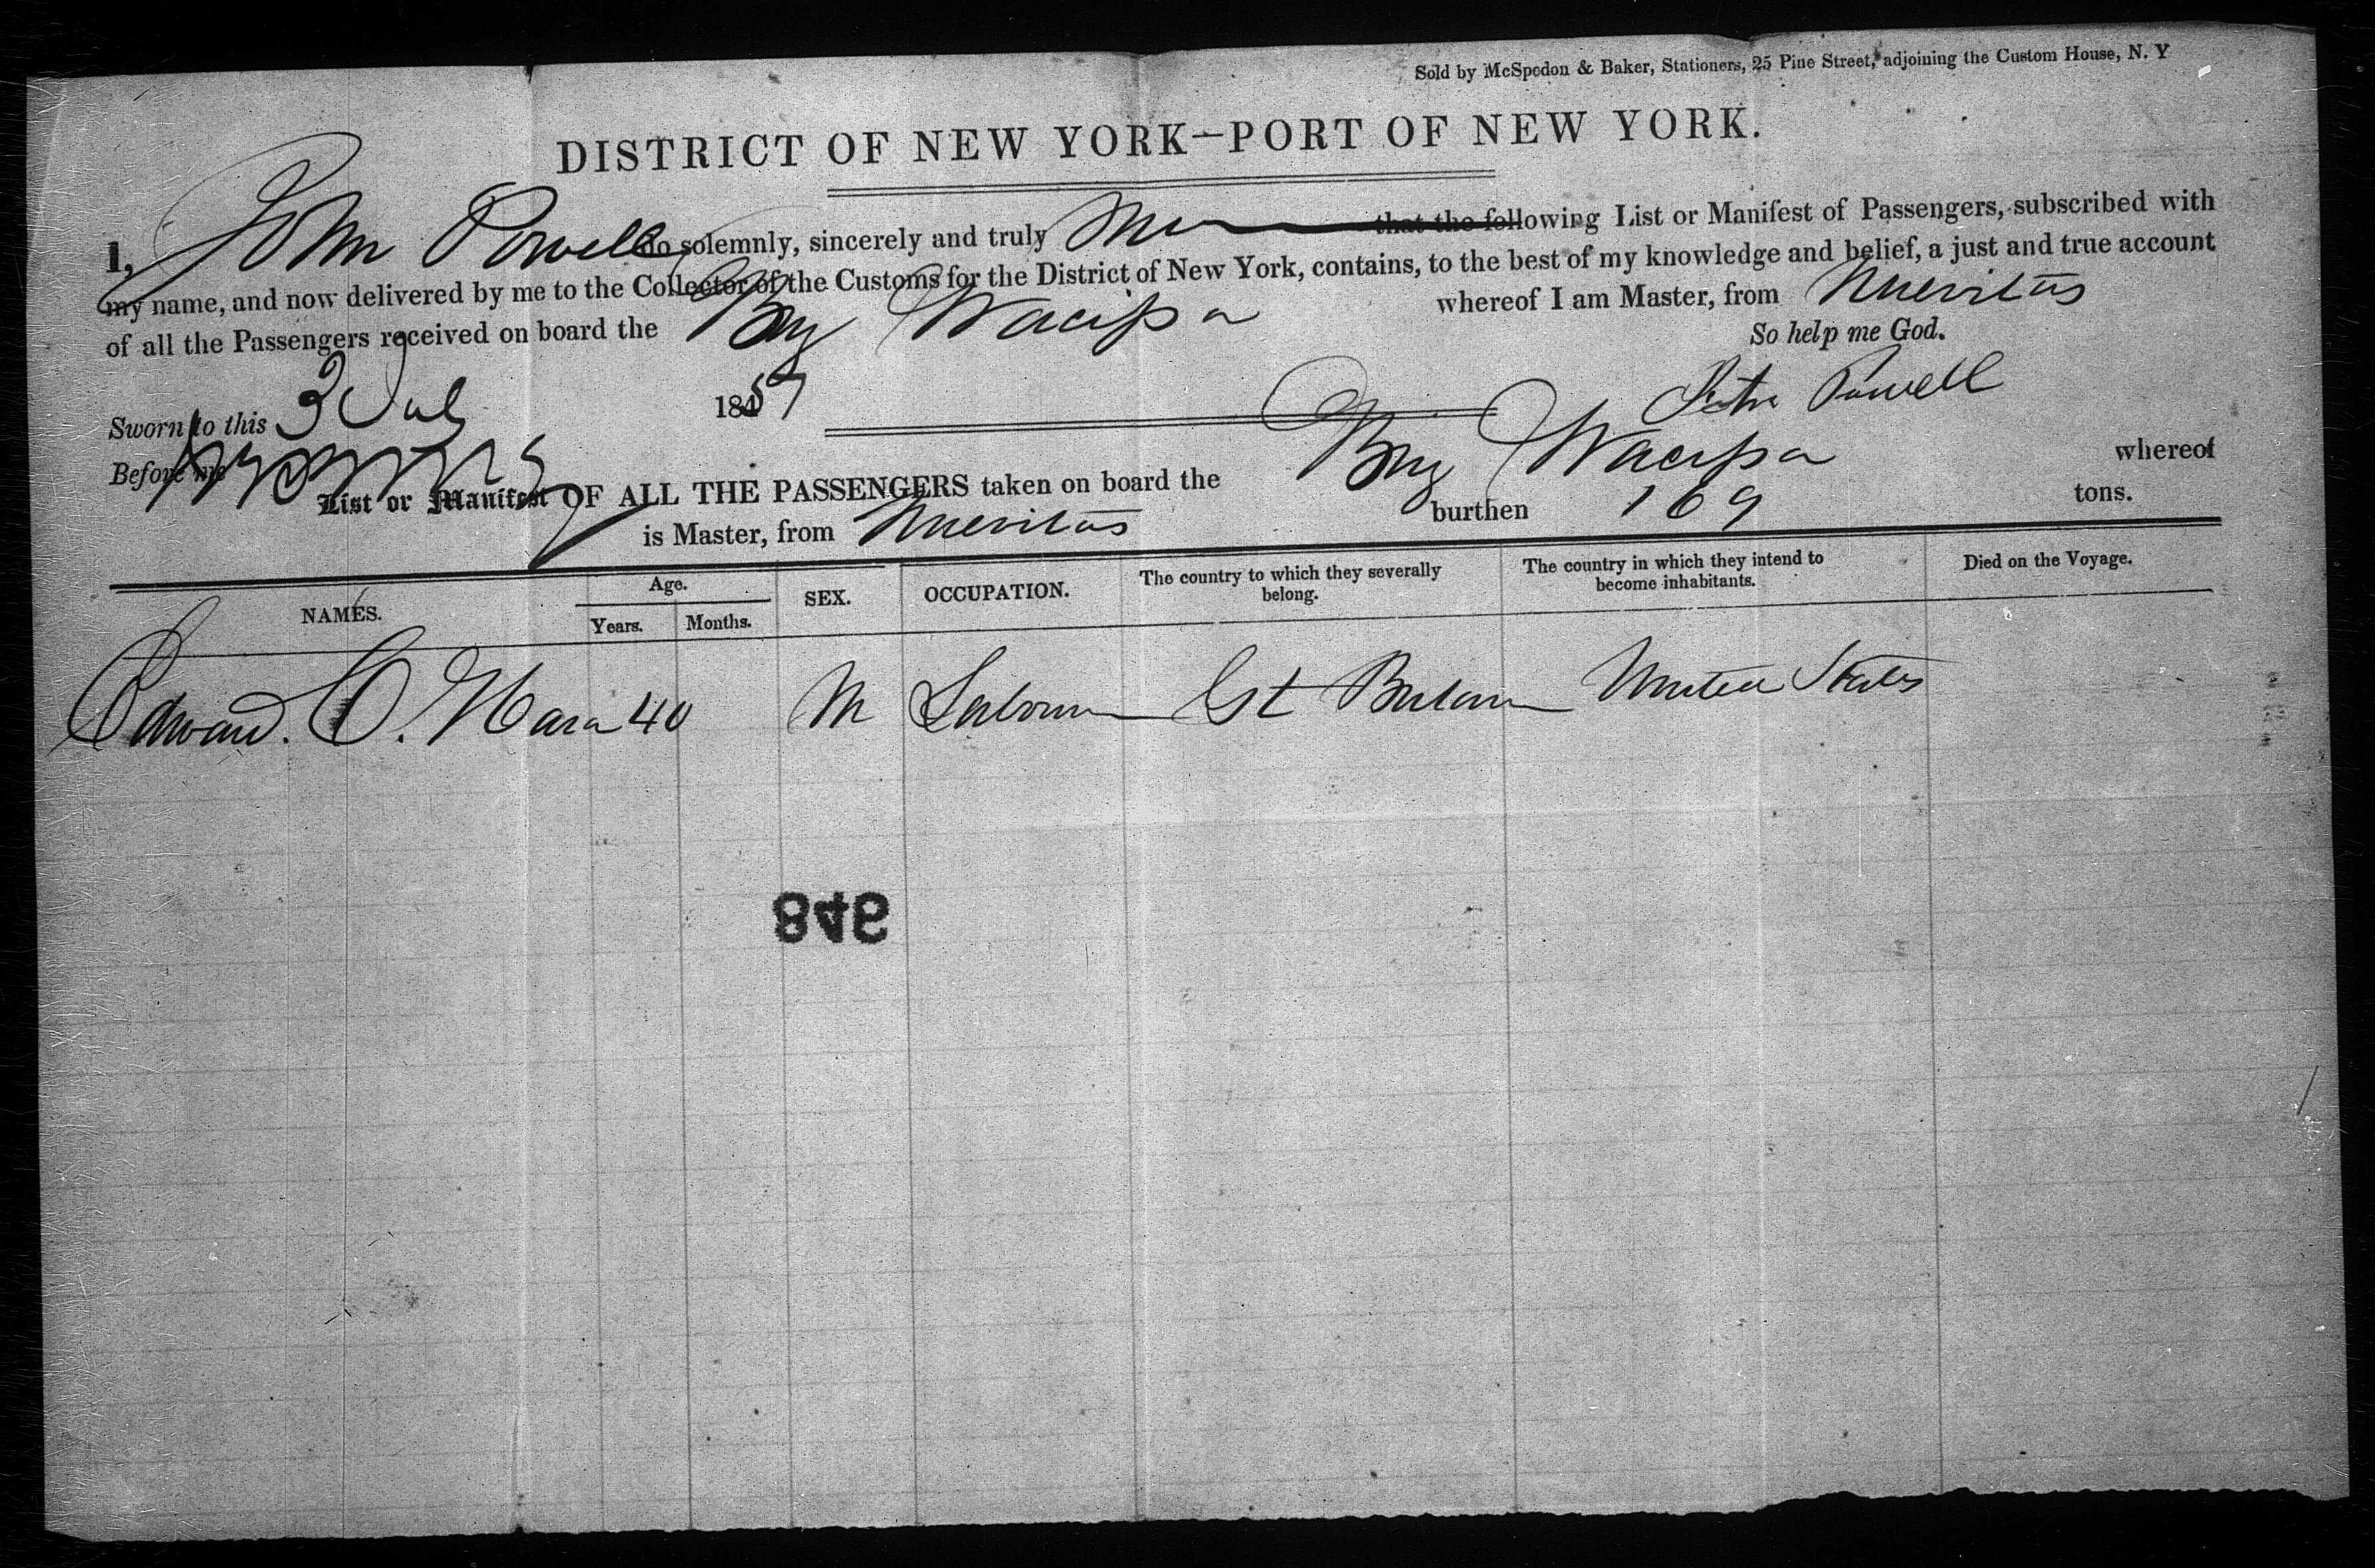 Sold by McSpedon & Baker, Stationers, 25 Pine Street, adjoining the Custom House, N. Y
DISTRICT OF NEW YORK—PORT OF NEW YORK.
I, John Powell do solemnly, sincerely and truly that the following List or Manifest of Passengers, subscribed with
my name, and now delivered by me to the Collector of the Customs for the District of New York, contains, to the best of my knowledge and belief, a just and true account
of all the Passengers received on board the Brig Wacissa whereof I am Master, from Nuevitas
So help me God.
Sworn to this 3 Jul 1857
Powell
Before me
List or Manifest OF ALL THE PASSENGERS taken on board the Brig Wacissa whereof
is Master, from Nuevitas burthen 169 tons.
NAMES. Age. Years. Months. SEX. OCCUPATION. The country to which they severally belong. The country in which they intend to become inhabitants. Died on the Voyage.
Edward. O. Hara 40 M Laborer Gt Britain United States
948